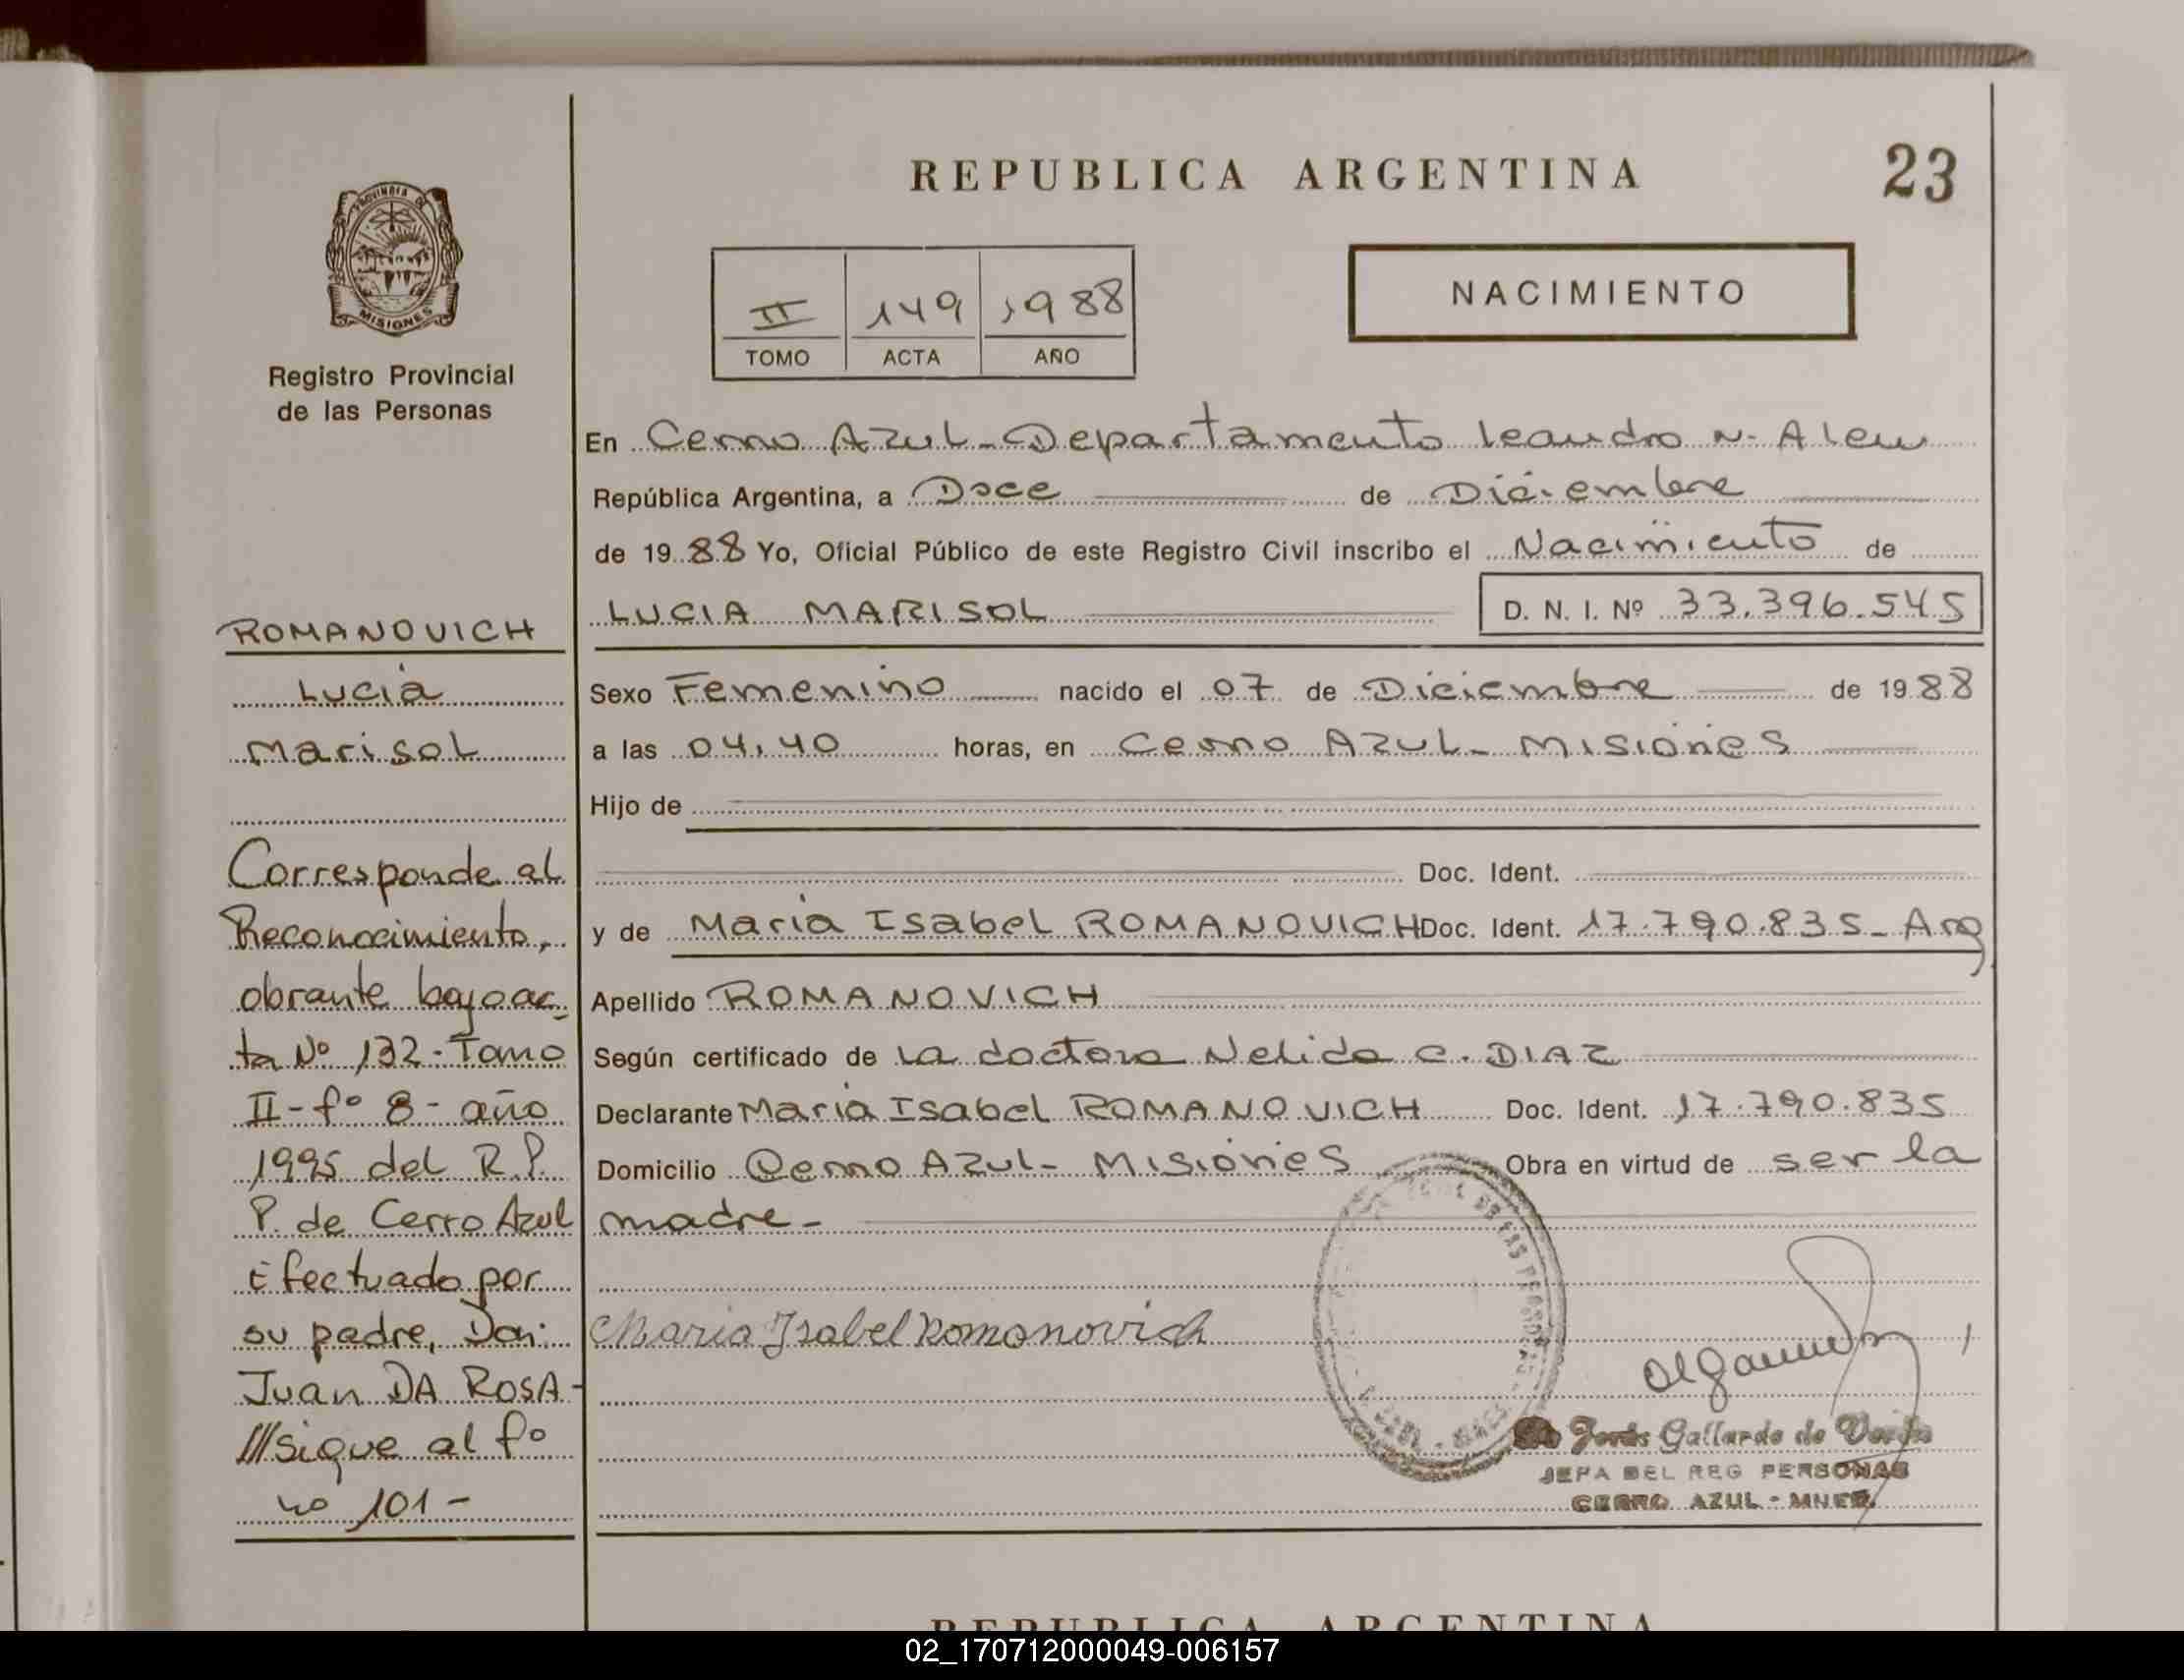 REPUBLICA ARGENTINA
23
PROVINCIA DE
MISIONES
Registro Provincial
de las Personas
II 149 1988
TOMO ACTA AÑO
NACIMIENTO
En Cerro Azul - Departamento Leandro N. Alem
República Argentina, a Doce de Diciembre
de 1988 Yo, Oficial Público de este Registro Civil inscribo el Nacimiento de
LUCIA MARISOL D. N. I. Nº 33.396.545
Sexo Femenino nacido el 07 de Diciembre de 1988
a las 04,40 horas, en Cerro Azul - Misiones
Hijo de
Doc. Ident.
y de Maria Isabel ROMANOVICH Doc. Ident. 17.790.835 - Arg
Apellido ROMANOVICH
Según certificado de la doctora Nelida C. DIAZ
Declarante Maria Isabel ROMANOVICH Doc. Ident. 17.790.835
Domicilio Cerro Azul - Misiones Obra en virtud de ser la
madre -
Maria Isabel Romanovich
Gallardo de
JEFA DEL REG PERSONAS
CERRO AZUL - MNES.
ROMANOVICH
Lucia
Marisol
Corresponde al
Reconocimiento,
obrante bajo ac-
ta Nº 132 - Tomo
II - fº 8 - año
1995 del R.P.
P. de Cerro Azul
Efectuado por
su padre, Don:
Juan DA ROSA -
///sigue al fº
nº 101 -
REPUBLICA ARGENTINA
02_170712000049-006157